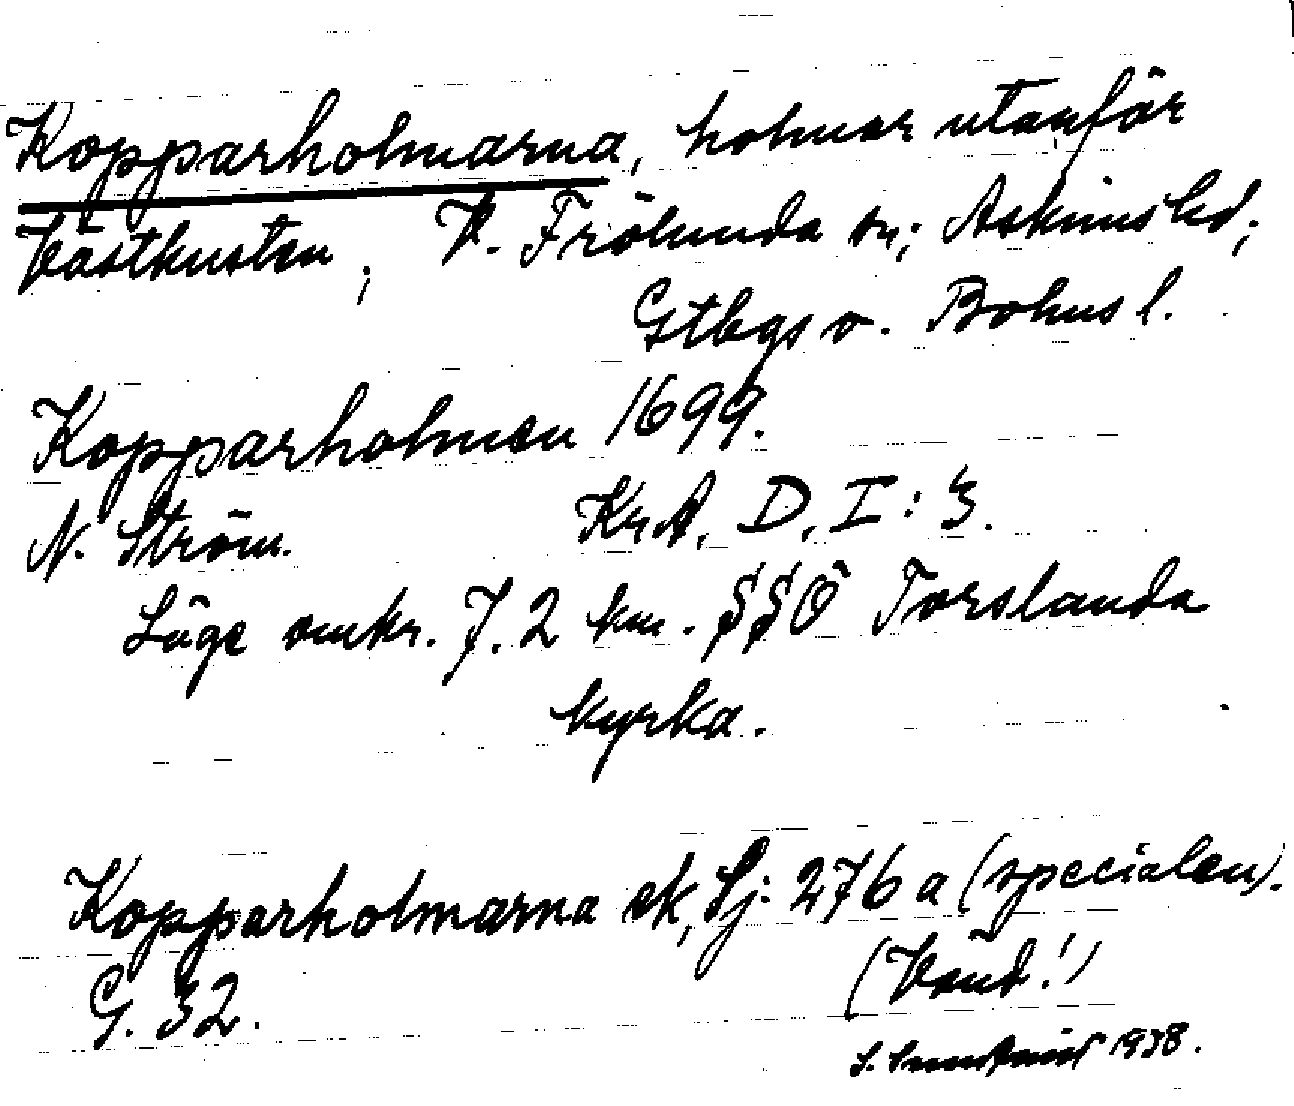 Kopparholmarna, holmar utanför
Västkusten; V. Frölunda sn; Askims hd;
Gtbgs o. Bohus l.
Kopparholmen 1699.
N. Ström. KrA, D, I: 3.
Läge omkr. 7.2 km. SSÖ Torslanda
kyrka.
Kopparholmarna ek, Sj. 276 a (specialen).
G. 32. (Vänd!)
S. 1938.